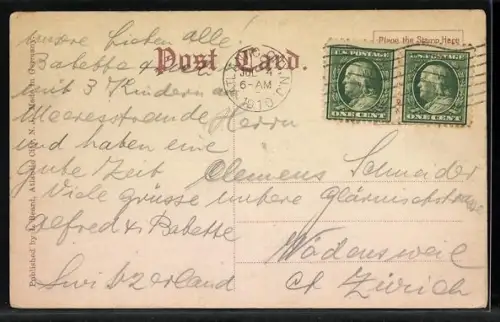 Post Card.
Place the Stamp Here
JUL 4
6-AM
1910
U.S. POSTAGE
ONE CENT
U.S. POSTAGE
ONE CENT
unsre Lieben alle!
Babette
mit 3 Kindern am
Meeresstrande Herrn
und haben eine
gute Zeit Clemens Schneider
Viele grüsse untere Glärnischstrasse
Alfred & Babette
Wädensweil
Switzerland ct Zürich
Atlantic City, N. J. Made in Germany